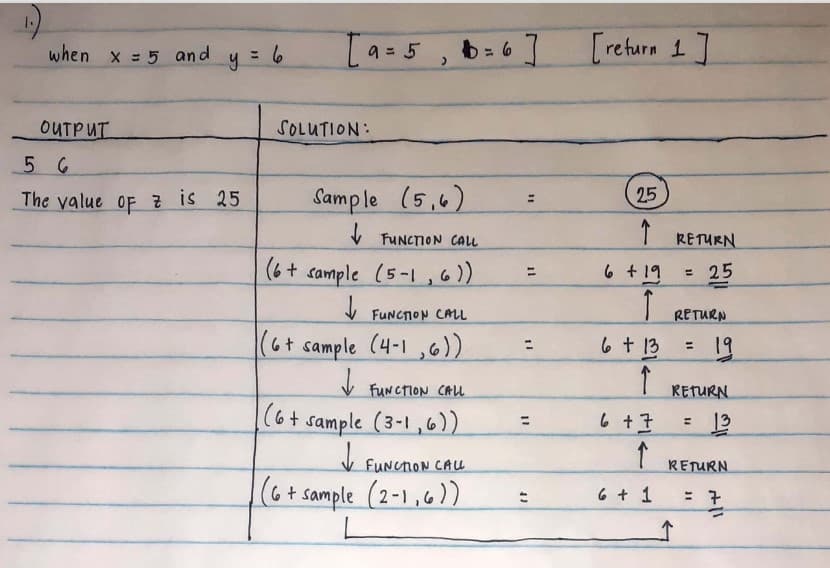 1.)
when x = 5 and y = 6 [ a = 5 , b = 6 ] [ return 1 ]
OUTPUT SOLUTION:
5 6
The value OF z is 25 Sample (5,6) = 25
↓ FUNCTION CALL ↑ RETURN
(6 + sample (5-1 , 6)) = 6 + 19 = 25
↓ FUNCTION CALL ↑ RETURN
(6 + sample (4-1 ,6)) = 6 + 13 = 19
↓ FUNCTION CALL ↑ RETURN
(6 + sample (3-1 ,6)) = 6 + 7 = 13
↓ FUNCTION CALL ↑ RETURN
(6 + sample (2-1 ,6)) = 6 + 1 = 7